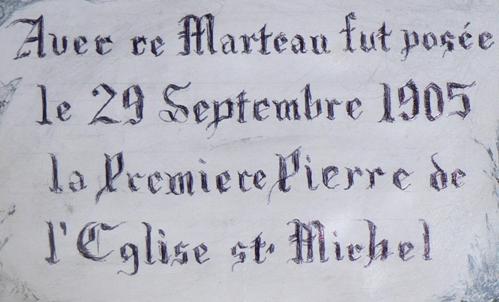 Avec ce Marteau fut posée
le 29 Septembre 1905
la Premiere Pierre de
l'Eglise st Michel